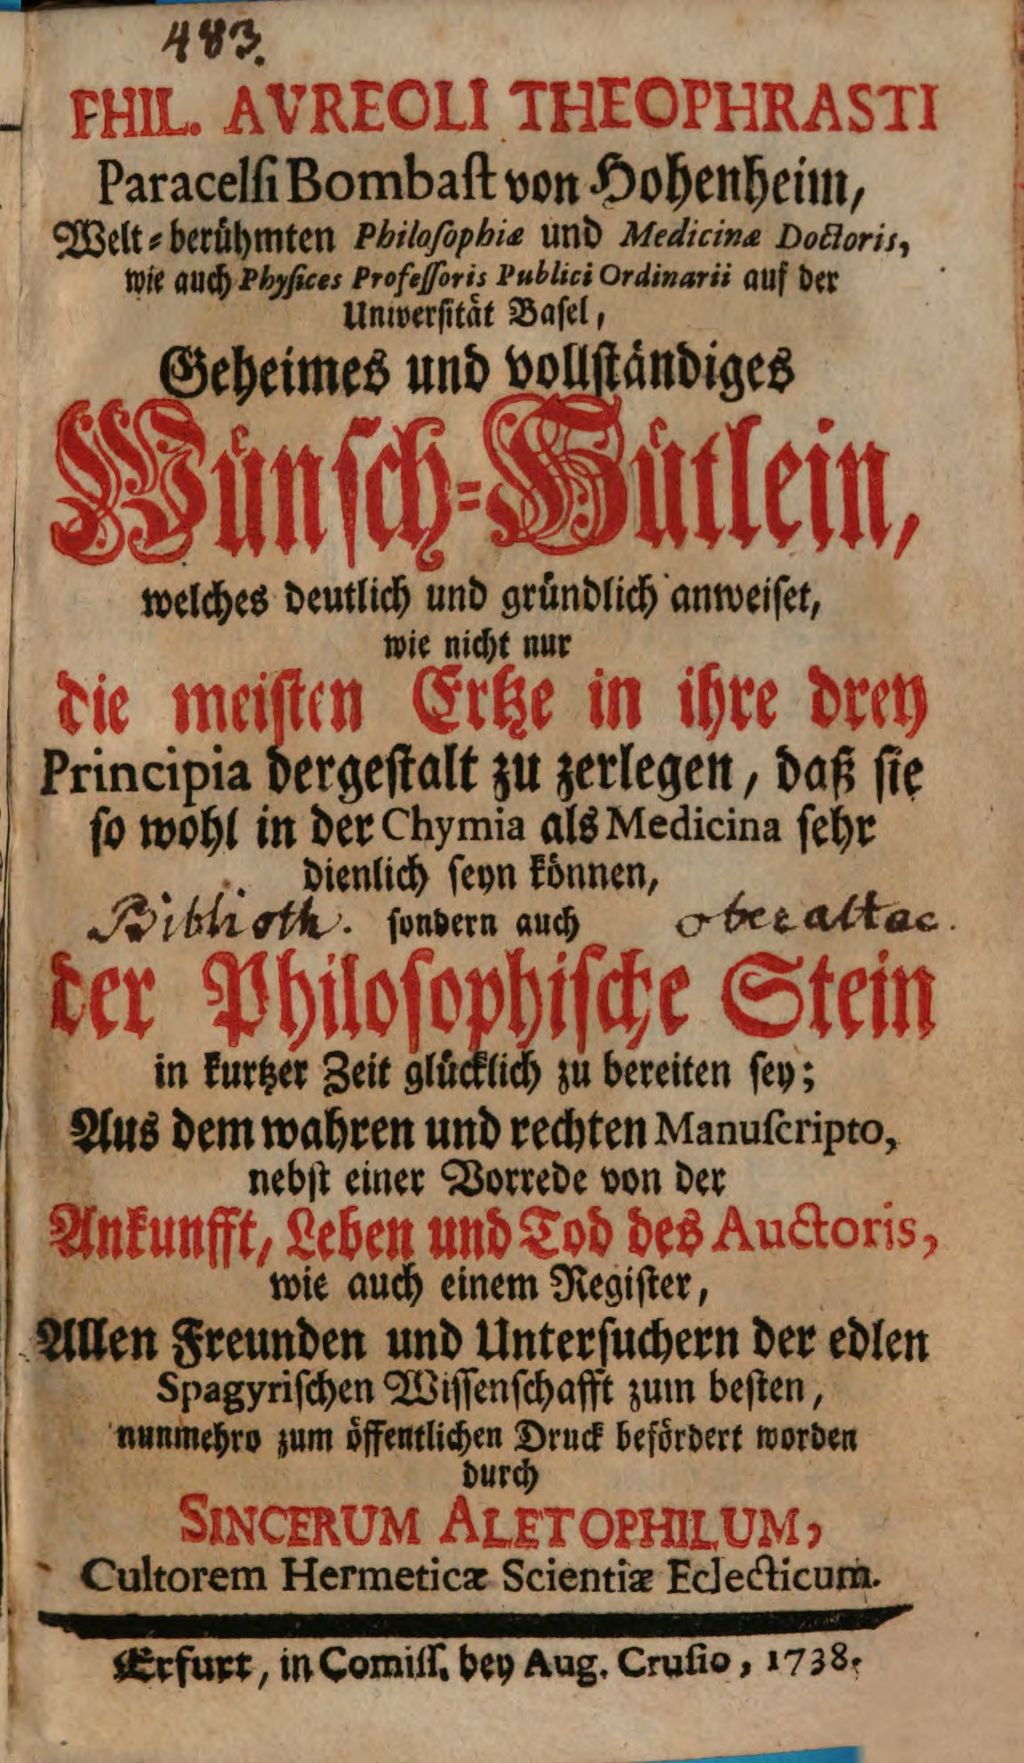 483.
PHIL. AVREOLI THEOPHRASTI
Paracelſi Bombaſt von Hohenheim,
Welt⸗berühmten Philoſophiæ und Medicinæ Doctoris,
wie auch Phyſices Profeſſoris Publici Ordinarii auf der
Univerſität Baſel,
Geheimes und vollſtändiges
Wůnſch⸗Hůtlein,
welches deutlich und gründlich anweiſet,
wie nicht nur
die meiſten Ertze in ihre drey
Principia dergeſtalt zu zerlegen, daß ſie
ſo wohl in der Chymia als Medicina ſehr
dienlich ſeyn können,
Biblioth. ſondern auch oberaltac.
der Philoſophiſche Stein
in kurtzer Zeit glücklich zu bereiten ſey;
Aus dem wahren und rechten Manuſcripto,
nebſt einer Vorrede von der
Ankunfft, Leben und Tod des Auctoris,
wie auch einem Regiſter,
Allen Freunden und Unterſuchern der edlen
Spagyriſchen Wiſſenſchafft zum beſten,
nunmehro zum öffentlichen Druck befördert worden
durch
SINCERUM ALETOPHILUM,
Cultorem Hermeticæ Scientiæ Eclecticum.
Erfurt, in Comiſſ. bey Aug. Cruſio, 1738.